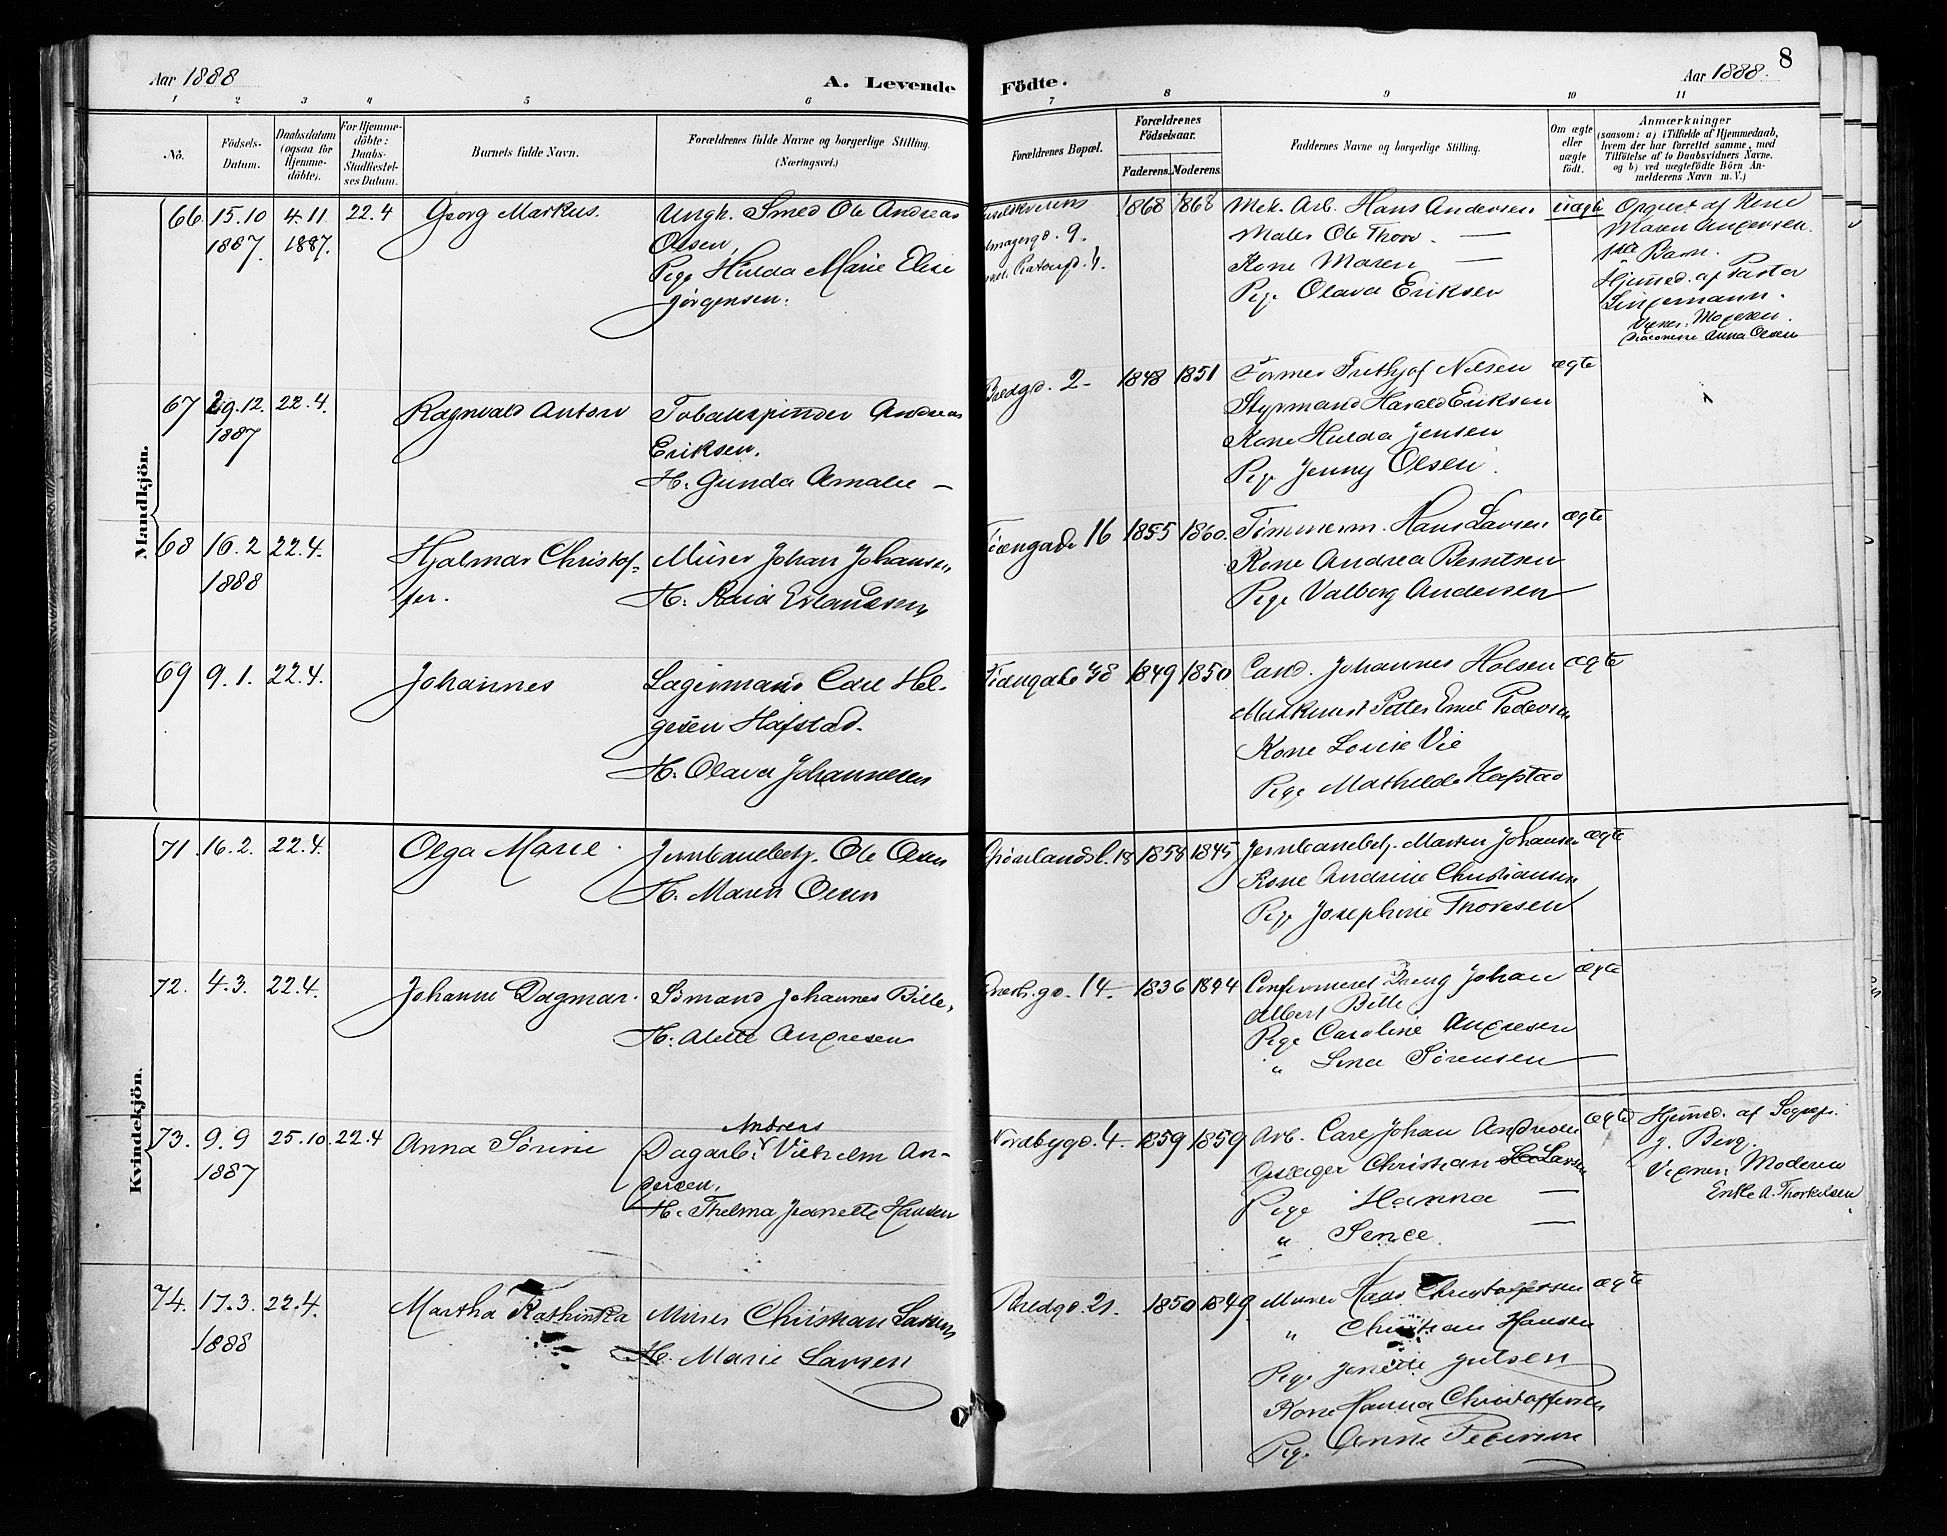 Aar 1888
A. Levende Födte.
Aar 1888.
8
1 2 3 4 5 6 7 8 9 10 11
No.
Födsels-Datum.
Daabsdatum (ogsaa for Hjemme-döbte).
For Hjemme-döbte: Daabs-Stadfæstel-ses Datum.
Barnets fulde Navn.
Forældrenes fulde Navne og borgerlige Stilling.
(Næringsvei.)
Forældrenes Bopæl.
Forældrenes Födselsaar.
Faderens. Moderens.
Faddernes Navne og borgerlige Stilling.
Om ægte eller uægte födt.
Anmærkninger
(saasom: a) i Tilfælde af Hjemmedaab, hvem der har forrettet samme, med Tilföielse af to Daabsvidners Navne, og b) ved uægtefödte Börn An-melderens Navn m. V.)
Mandkjön.
66. 15.10 4.11 22.4 Georg Markus. Ungk. Smed Ole Andreas
1887. 1887. Olsen,
Pige Hulda Marie Elise
Jörgensen.
9.
1868 1868 Mek. Arb. Hans Andersen uægte
Maler Ole Thorv. —
Kone Maren —
Pige Olava Eriksen
Opgivet af Kone
Maren Andersen.
1ste Barn.
Hjemmed. af Pastor
Lingemann.
Diaconesse Anna Olsen
67 29.12. 22.4. Ragnvald Anton Tobakspinder Andreas
1887 Eriksen.
H: Gunda Amalie —
Bredgd. 2 1848 1851 Former Frithjof Nilsen ægte
Styrmand Harald Eriksen
Kone Hulda Jensen
Pige Jenny Olsen.
68 16.2 22.4. Hjalmar Christof- Murer Johan Johansen
1888 fer. H: Erlandsen
16 1855 1860. Tömmerm. Hans Larsen ægte
Kone Andrea Berntsen
Pige Valborg Andersen
69 9.1. 22.4. Johannes Lagermand Carl Hel-
gesen Hafstad.
H. Olava Johannesen
1849 1850 Cand. Johannes Holsen ægte
Petter Emil Pedersen
Kone Louise Vie
Pige Mathilde Hafstad
Kvindekjön.
71. 16.2. 22.4. Olga Marie. Jernbanebetj. Ole Olsen
H. Maren Olsen
Grönlandsl. 18 1854 1845 Jernbanebetj. Martin Johansen ægte
Kone Andrine Christiansen
Pige Josephine Thoresen
72. 4.3. 22.4. Johanne Dagmar. Sömand Johannes Bille,
H: Alette Andresen
14. 1836 1844 Confirmeret Dreng Johan ægte
Albert Bille
Pige Caroline Andresen
" Lina Sörensen
73. 9.9 25.10 22.4 Anna Sörine Dagarb. Andreas Vilhelm An-
1887 dersen,
H. Thelma Jeanette Hansen
Nordbygd. 4. 1859 1859 Arb. Carl Johan Andresen ægte
Christian Larsen
Pige Hanna —
" —
Hjemmed. af Sognep.
J. Berg.
Vidner: Moderen
Enke A. Thorkelsen
74. 17.3. 22.4. Martha Kathinka Murer Christian Larsen
1888 H. Marie Larsen
Bredgd. 21. 1850 1849. Murer Hans Christoffersen ægte
" Christian Hansen
Pige Jenette Julsen
Kone Hanna Christoffersen
Pige Anne Pedersen